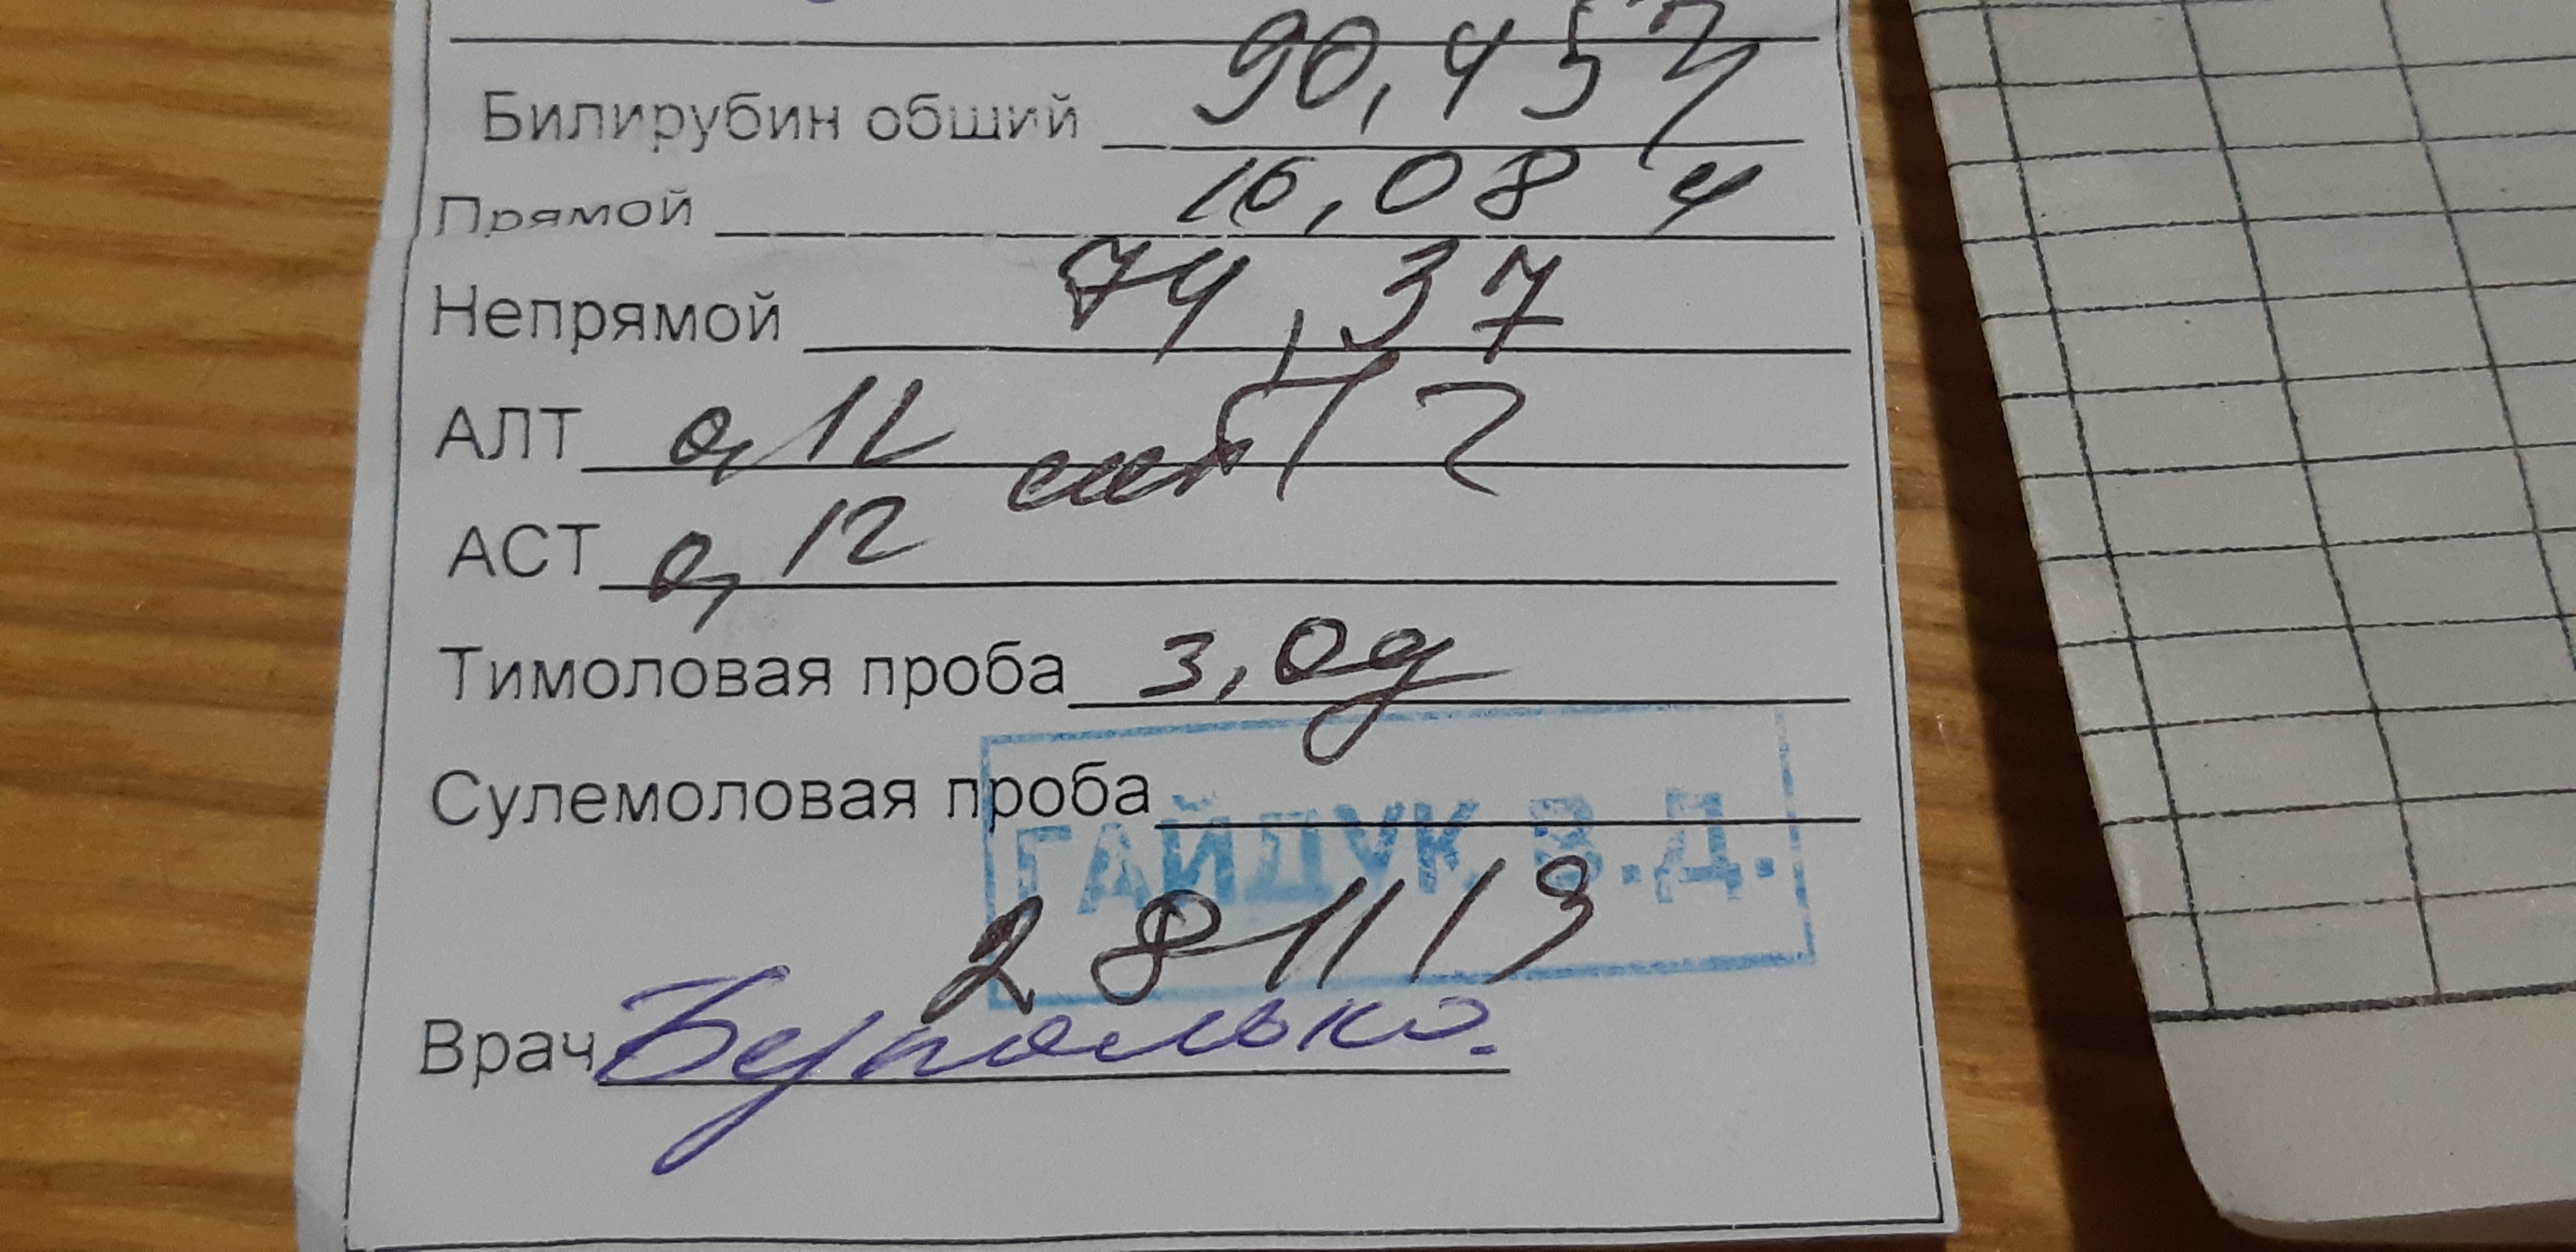 Билирубин обший 90,457
Прямой 16,084
Непрямой 74,37
АЛТ 0,12
АСТ 0,12
Тимоловая проба 3,0
Сулемоловая проба
ГАЙДУК В.Д.
28 11 19
Врач